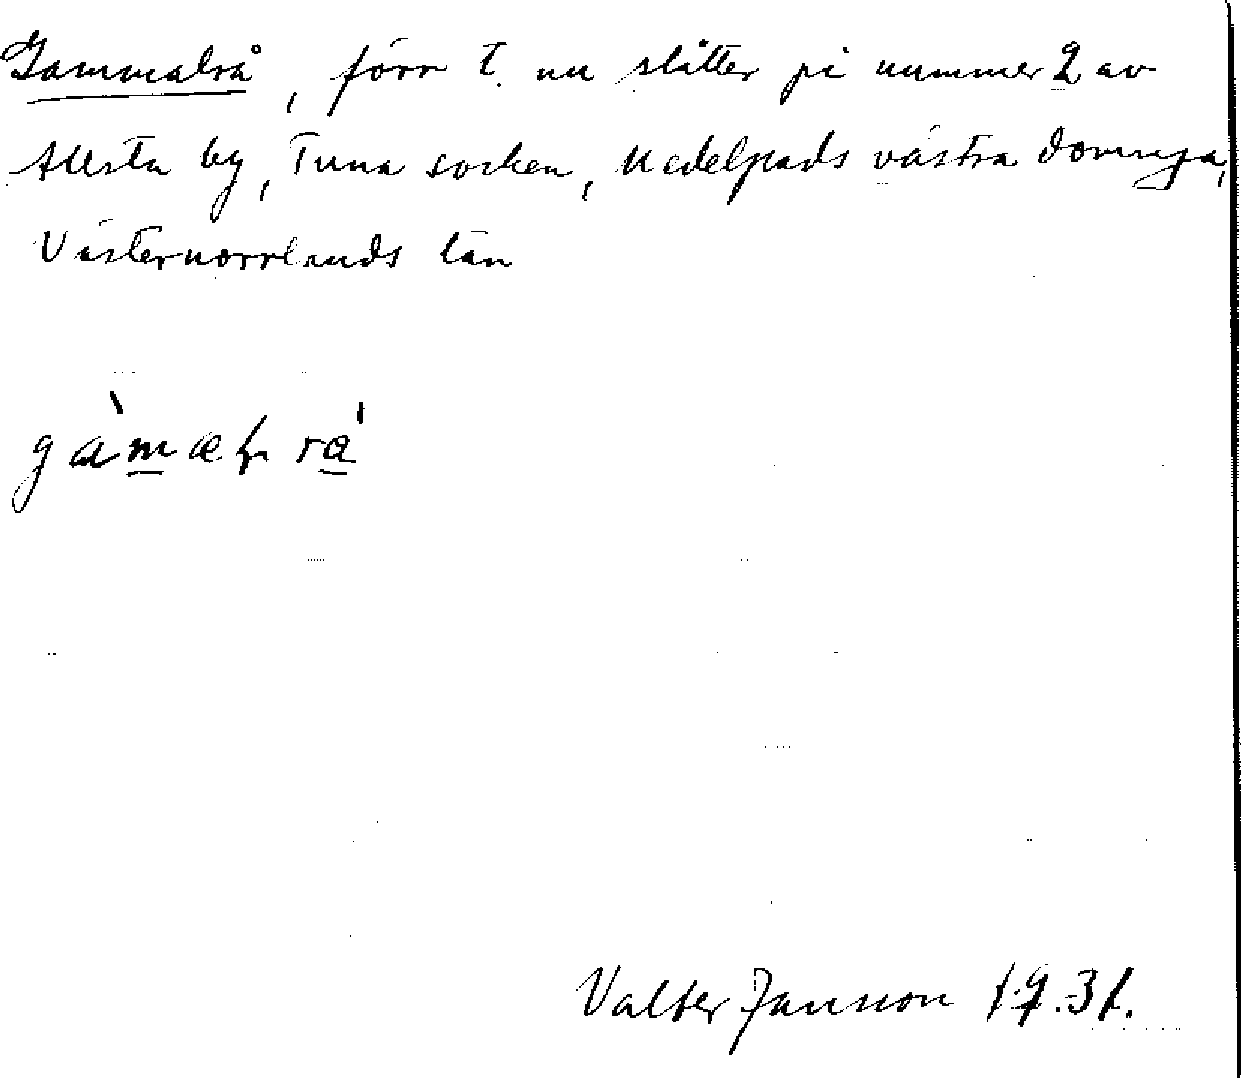 Gammalrå, förr t. nu slåtter på nummer 2 av
Allsta by, Tuna socken, Medelpads västra domsaga,
Västernorrlands län
Valter Jansson 1931.